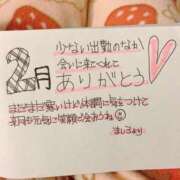 2月
少ない出勤のなか
会いに来てくれて
ありがとう
まだまだ寒いけど体調に気をつけて
来月も元気に笑顔で会おうね
ましろ